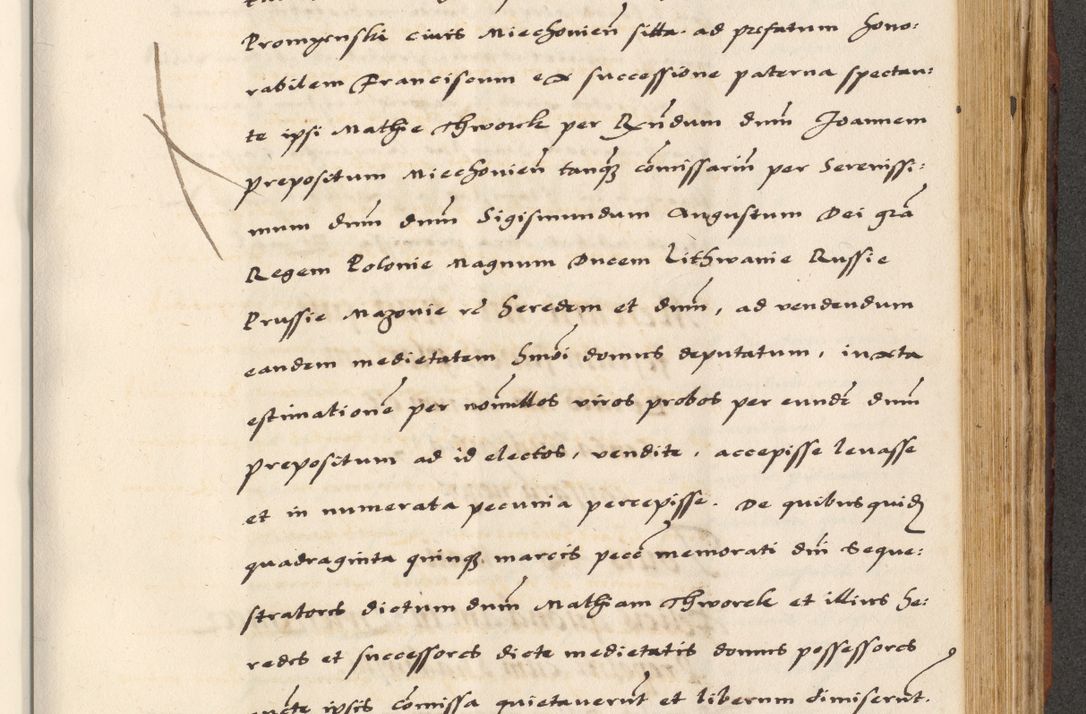 Promyenski civis Miechovień sitta. ad prefatum hono:
rabilem Franciscum ex successione paterna spectan:
te ipsi Mathie Thworek per Rńdum dnm̃ Joannem
prepositum Miechovień tanqꝫ com̃issariũ per Serenissi:
mum dnm̃ dnm̃ Sigismundum Augustum Dei gr̃a
Regem Polonie Magnum Ducem Lithwanie Russie
Prussie Mazovie rč heredem et dnm̃, ad vendendum
eandem medietatem hm̃oi domus deputatum, iuxta
estimationẽ per nõnullos viros probos per eundẽ dnm̃
prepositum ad id electos, vendite, accepisse levasse
et in numerata pecunia percepisse. De quibusquidꝫ
quadraginta quinqꝫ marcis pecc̃ memorati dñi Seque:
stratores dictum dnm̃ Mathiam Thworek et illius he:
redes et successores dicte medietatis domus possessores
ipsis com̃issa quietaverũt et liberum dimiserũt.